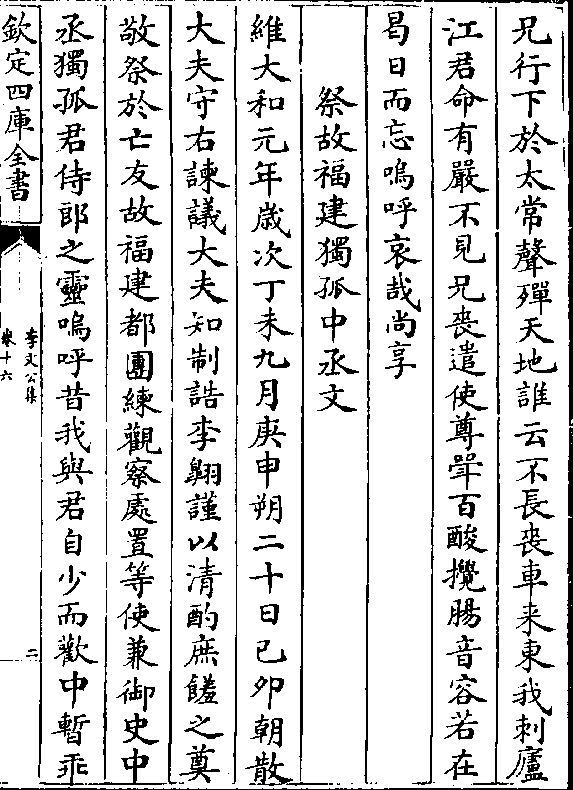 兄行下於太常聲殫天地誰云不長喪車来東我刺廬
江君命有嚴不見兄喪遣使尊斝百酸攪腸音容若在
曷日而忘嗚呼哀哉尚享
祭故福建獨孤中丞文
維大和元年歳次丁未九月庚申朔二十日己卯朝散
大夫守右諫議大夫知制誥李翺謹以清酌庶饈之奠
敬祭於亡友故福建都團練觀察處置等使兼御史中
丞獨孤君侍郎之靈嗚呼昔我與君自少而歡中暫乖
欽定四庫全書
李文公集
卷十六
二